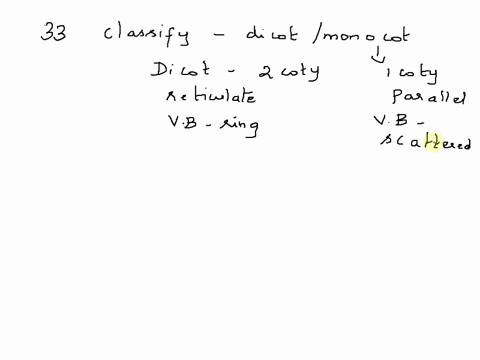 33 classify - dicot / monocot
Dicot - 2 coty
reticulate
V.B - ring
1 coty
Parallel
V.B -
scattered